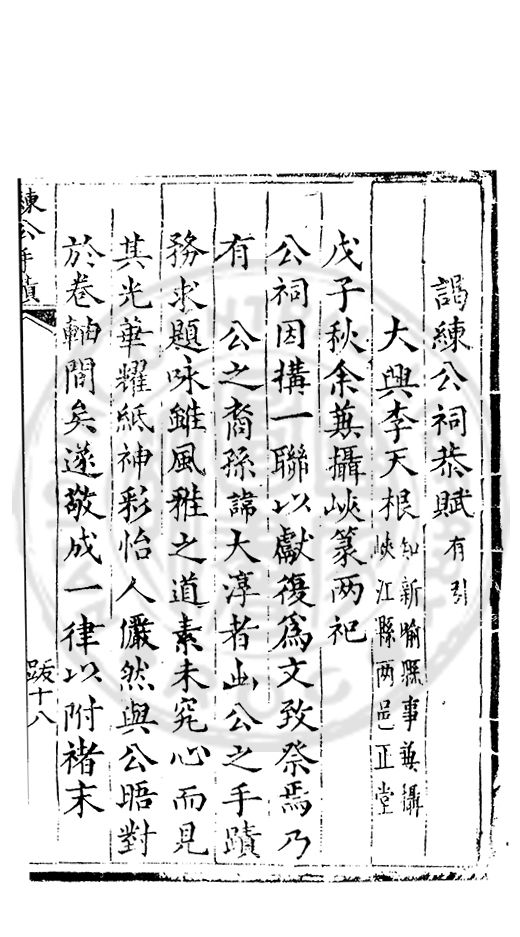 謁練公祠恭賦 有引
大興李天根 知新喻縣事兼攝
峽江縣兩邑正堂
戊子秋余兼攝峽篆两祀
公祠因搆一聯以獻復為文致祭焉乃
有　公之裔孫諱大淳者出公之手蹟
務求題咏雖風雅之道素未究心而見
其光華耀紙神彩怡人儼然與公晤對
於卷軸間矣遂敬成一律以附禇末
練公手蹟
跋十八